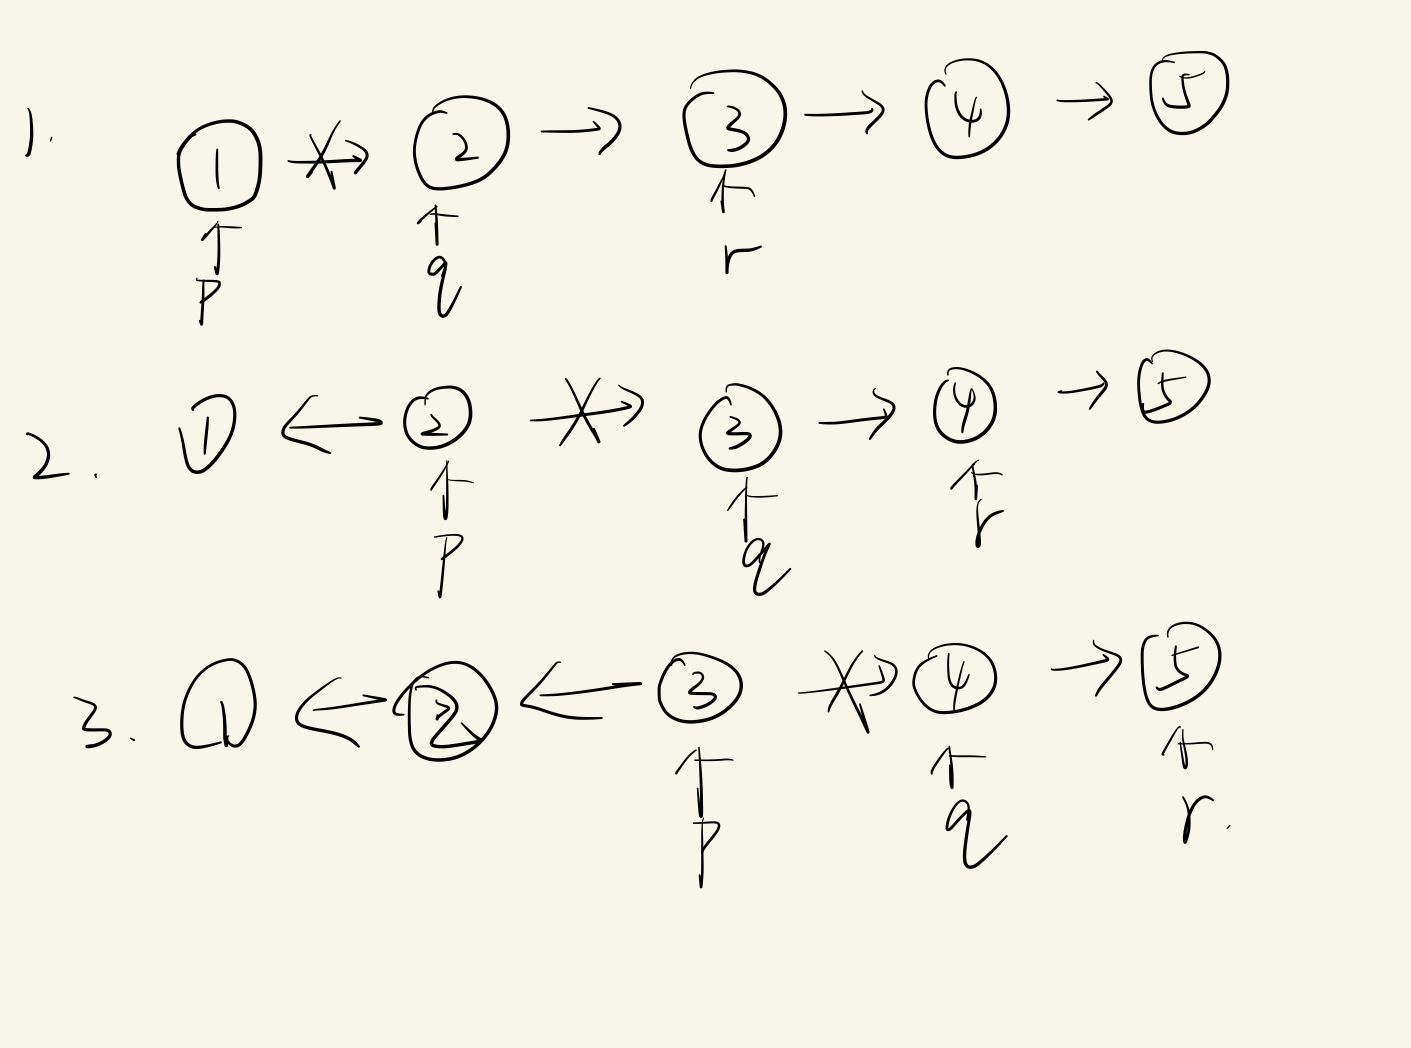 1. 1 2 3 4 5
p q r
2. 1 2 3 4 5
p q r
3. 1 2 3 4 5
p q r.